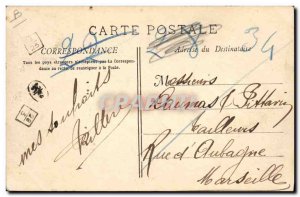 CARTE POSTALE
CORRESPONDANCE
Adresse du Destinataire
Tous les pays étrangers n'acceptent pas la Correspondance
au recto, se renseigner à la Poste.
34
Messieurs
tailleurs
Rue d'Aubagne
Marseille
mes souhaits